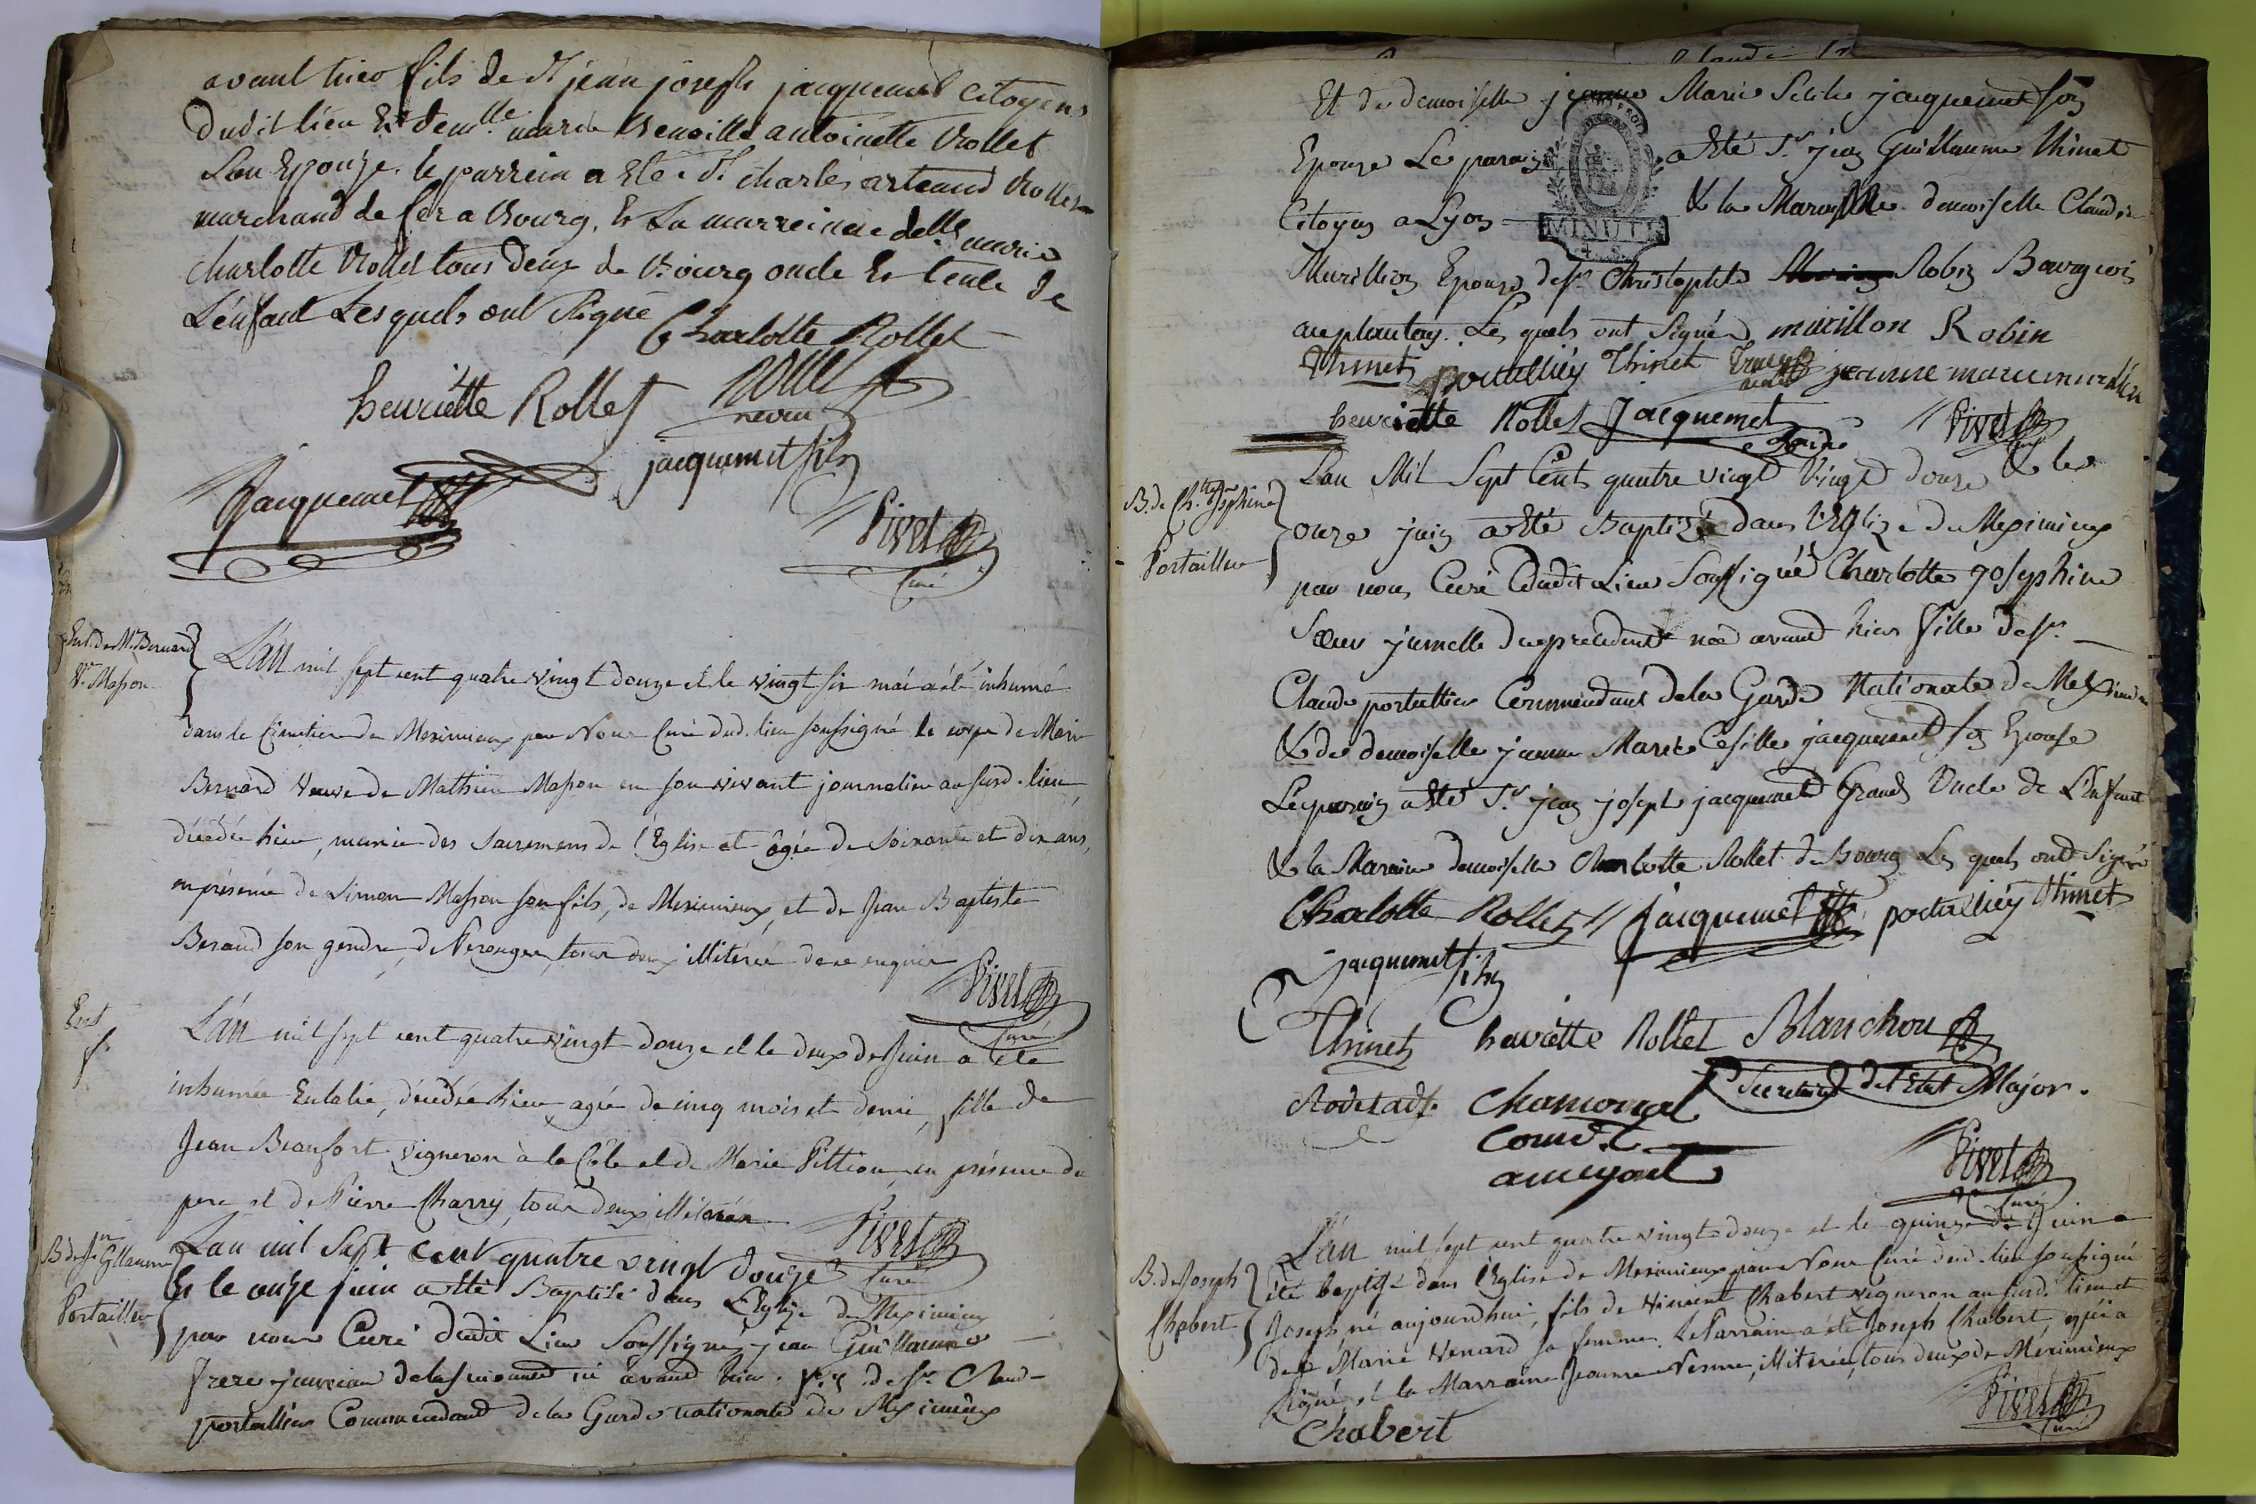 avant hier fils de Sr jean joseph jacquemet citoyens
dudit lieu Et demlle marie benoitte antoinette Rollet
Son Epouze. le parrein a Eté Sr charles artaud Rollet
marchand de fer a bourg. Et La marreinne delle marie
charlotte Rollet tous deux de bourg oncle Et tente de
L'énfant Lesquels ont Signé
Charlotte Rollet
henriette Rollet
jacquemet fils
Jacquemet
Pivet
Curé
Ent. de Me Bernard
Ve Masson
L'an mil sept cent quatre vingt douze et le vingt six mai a été inhumé
dans le Cimetiere de Meximieux par Nous Curé dud. lieu soussigné le corps de Marie
Bernard Veuve de Mathieu Masson en son vivant journalier au susd. lieu,
décédée hier, munie des Sacremens de l'Eglise et âgée de Soixante et dix ans,
en présence de Simon Masson son fils, de Meximieux, et de Jean Baptiste
Beraud son gendre, de Perouges, tous deux illiterés de ce enquis
Pivet
Curé
Ent
L'an mil sept cent quatre vingt douze et le deux de Juin a été
inhumée Eulalie, décédée hier, agée de cinq mois et demi, fille de
Jean Beaufort vigneron à la Côte et de Marie Pittion, en présence du
pere et de Pierre Charry, tous deux illiterés
Pivet
Curé
B. de Jn Gllaume
Portallier
Lan mil Sept cent quatre vingt douze
Et le onze juin a été Baptisé dans L'Eglize de Meximieux
par nous Curé dudit Lieu Soussigné jean Guillaume
frere jumeau de la suivante né avant hier. fils de Sr Claude
portallier Commendant de la Garde nationale de Meximieux
Et de demoiselle jeanne Marie Sesile jacquemet son
Epouze Le parain a été Sr jean Guillaume Thinet
Citoyen a Lyon & la Maraine demoiselle Claudine
MINUTE
Murillion Epouze de Sr Christophle Robin Bourgeois
au plantay. Les quels ont Signés murillon Robin
Thinet portallier Thinet jeanne marie
henriette Rollet Jacquemet
Pivet
B. de Chtte Josephine
Portallier
Lan Mil Sept Cent quatre vingt vingt douze & le
onze juin a été Baptizé dans L'Eglize de Meximieux
par nous Curé dudit Lieu Soussigné Charlotte josephine
Sœur jumelle du precedent née avant hier fille de Sr
Claude portallier Commendant de la Garde Nationale de Meximieux
& de demoiselle jeanne Marie Cesille jacquemet son Epouse
Le parain a été Sr jean joseph jacquemet Grand Oncle de L'Enfant
& la Maraine demoiselle Charlotte Rollet de Bourg Les quels ont Signé
Charlotte Rollet Jacquemet portallier Thinet
Jacquemet fils
Thinet henriette Rollet Blanchon
Secretaire de l'Etat Major.
Chamonal
Pivet
Curé
B. de Joseph
Chabert
L'an mil sept cent quatre vingt douze et le quinze de Juin a
été baptisé dans l'Eglise de Meximieux par Nous Curé dud. lieu soussigné
Joseph, né aujourdhui, fils de Vincent Chabert vigneron au susd. lieu et
de Marie Venard sa femme. Le Parrain a été Joseph Chabert, qui a
signé et la Marraine Jeanne Venne, illiterée, tous deux de Meximieux
Chabert
Pivet
Curé